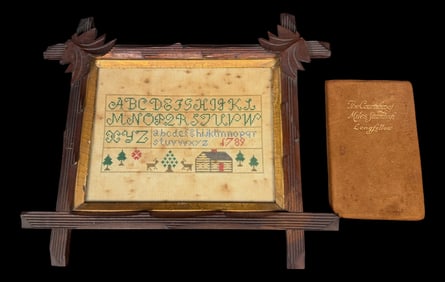 ABCDEFGHIJKL
MNOPQRSTUVW
XYZ
abcdefghijklmnopqr
stuvwxyz 1789
The Courtship of
Miles Standish
Longfellow